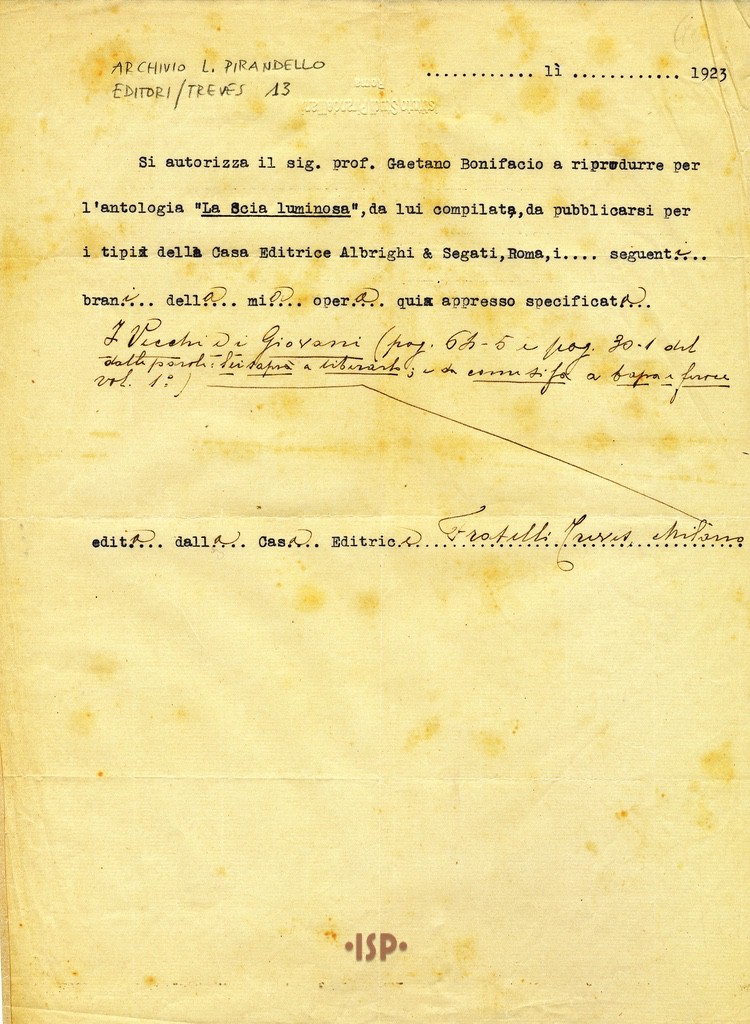 ARCHIVIO L. PIRANDELLO
EDITORI/TREVES 13
............ lì ............ 1923
Si autorizza il sig. prof. Gaetano Bonifacio a riprodurre per
l'antologia "La Scia luminosa", da lui compilata, da pubblicarsi per
i tipi della Casa Editrice Albrighi & Segati, Roma, i.... seguenti....
brani... della... mia... opera... qui appresso specificata...
I Vecchi e i Giovani (pag. 64-5 e pag. 30-1 del
dalle parole: a liberarlo; e da come si fa a
vol. 1º)
edita... dalla... Casa.. Editrice.. Fratelli Treves, Milano
•ISP•